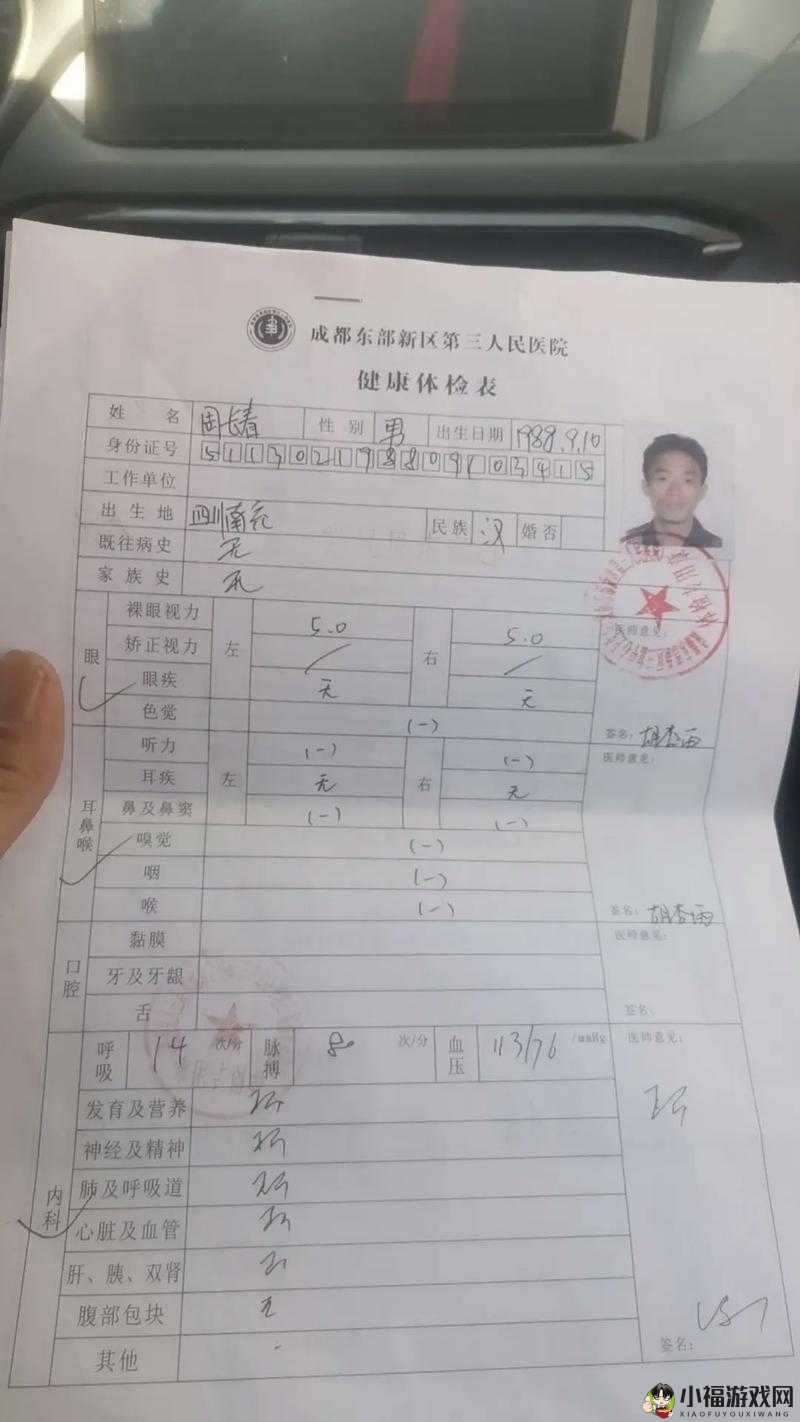 成都东部新区第三人民医院
健康体检表
姓名 周长春 性别 男 出生日期 1988.9.10
身份证号
工作单位
出生地 四川南充 民族 汉 婚否
既往病史 无
家族史 无
眼 裸眼视力 左 5.0 右 5.0 医师意见:
矫正视力 / /
眼疾 无 无
色觉 (-) 签名: 胡杏雨
耳鼻喉 听力 左 (-) 右 (-) 医师意见:
耳疾 无 无
鼻及鼻窦 (-) (-)
嗅觉 (-)
咽 (-)
喉 (-) 签名: 胡杏雨
口腔 黏膜 医师意见:
牙及牙龈
舌 签名:
内科 呼吸 14 次/分 脉搏 80 次/分 血压 113/76 /mmHg 医师意见:
发育及营养
神经及精神
肺及呼吸道
心脏及血管
肝、胰、双肾
腹部包块 无
其他 - 签名:
小福游戏网
XIAOFUYOUXIWANG